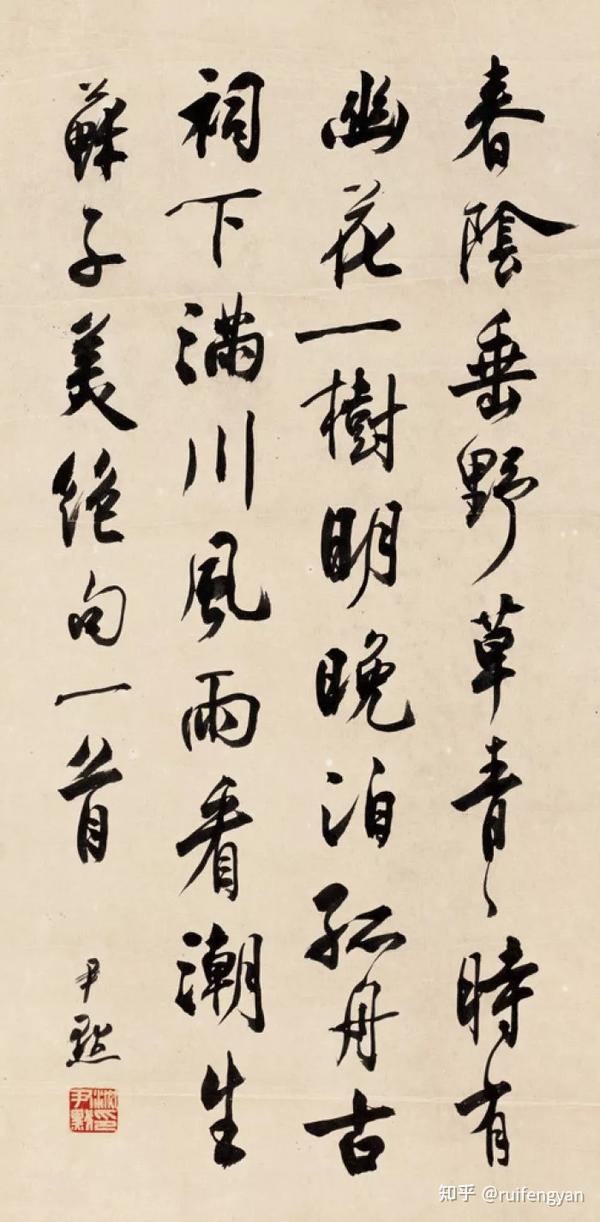 春陰垂野草青〻時有
幽花一樹明晚泊孤舟古
祠下滿川風雨看潮生
蘇子美絕句一首
尹默
沈尹默印
知乎 @ruifengyan